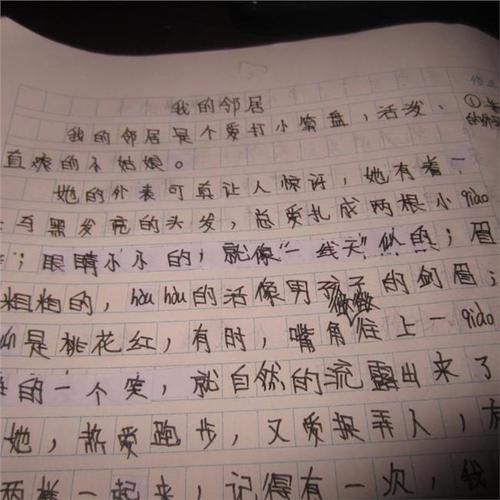 我的邻居
我的邻居是个爱打小算盘，活泼、
直爽的小姑娘。
她的外表可真让人惊讶，她有着一
乌黑发亮的头发，总爱扎成两根小qiào
；眼睛小小的，就像“一线天”似的；眉
粗粗的，hòu hòu的活像男孩子的剑眉；
是桃花红，有时，嘴角微微往上一qiào
的一个笑，就自然的流露出来了
她，热爱跑步，又爱捉弄人，
一起来，记得有一次，我